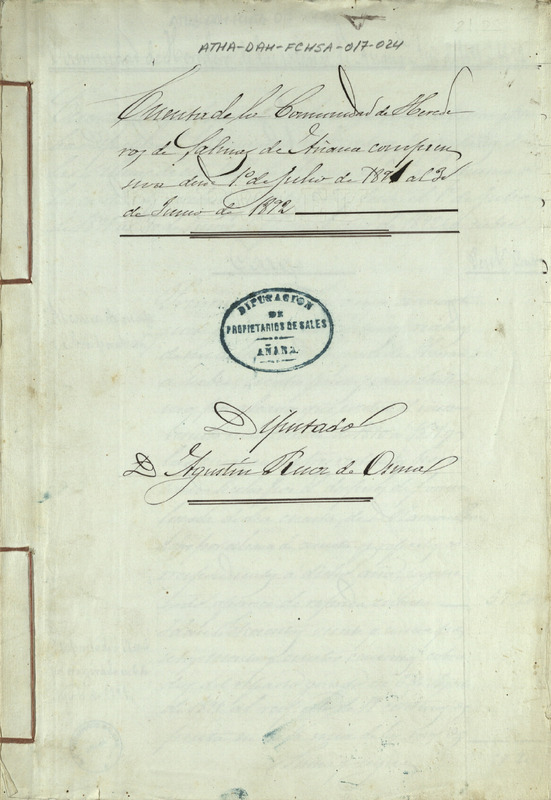 ATHA-DAH-FCHSA-017-024
Cuenta de la Comunidad de Herede
ros de Salinas de Añana compren
siva desde 1º de Julio de 1891 al 30
de Junio de 1892
DIPUTACION
DE
PROPIETARIOS DE SALES
AÑANA
Diputado
D Agustín Ruiz de Osma